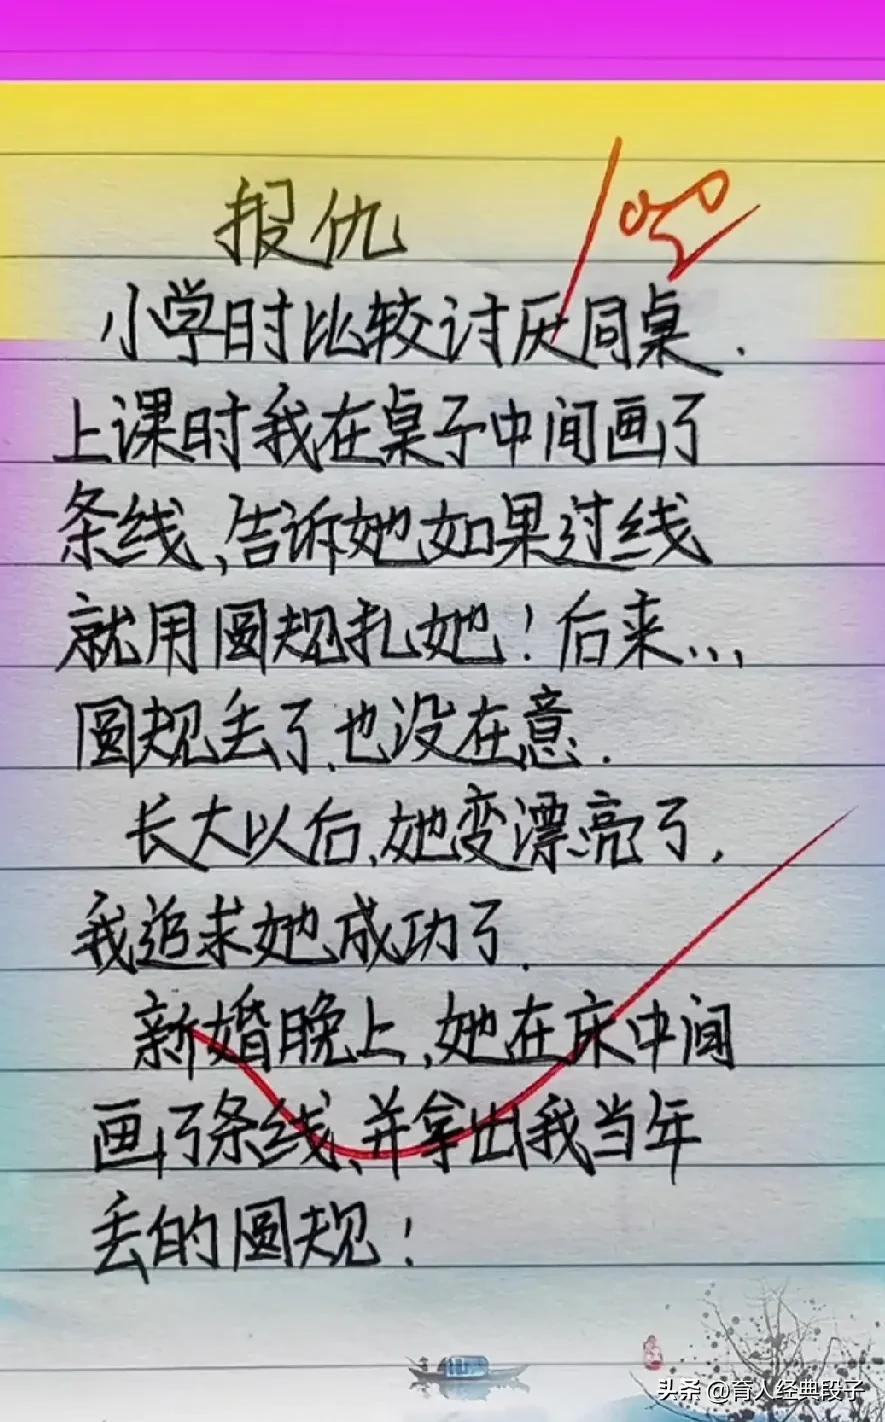 报仇
100
小学时比较讨厌同桌.
上课时我在桌子中间画了
条线,告诉她如果过线
就用圆规扎她!后来...
圆规丢了,也没在意.
长大以后,她变漂亮了,
我追求她成功了.
新婚晚上,她在床中间
画了条线,并拿出我当年
丢的圆规!
头条 @育人经典段子